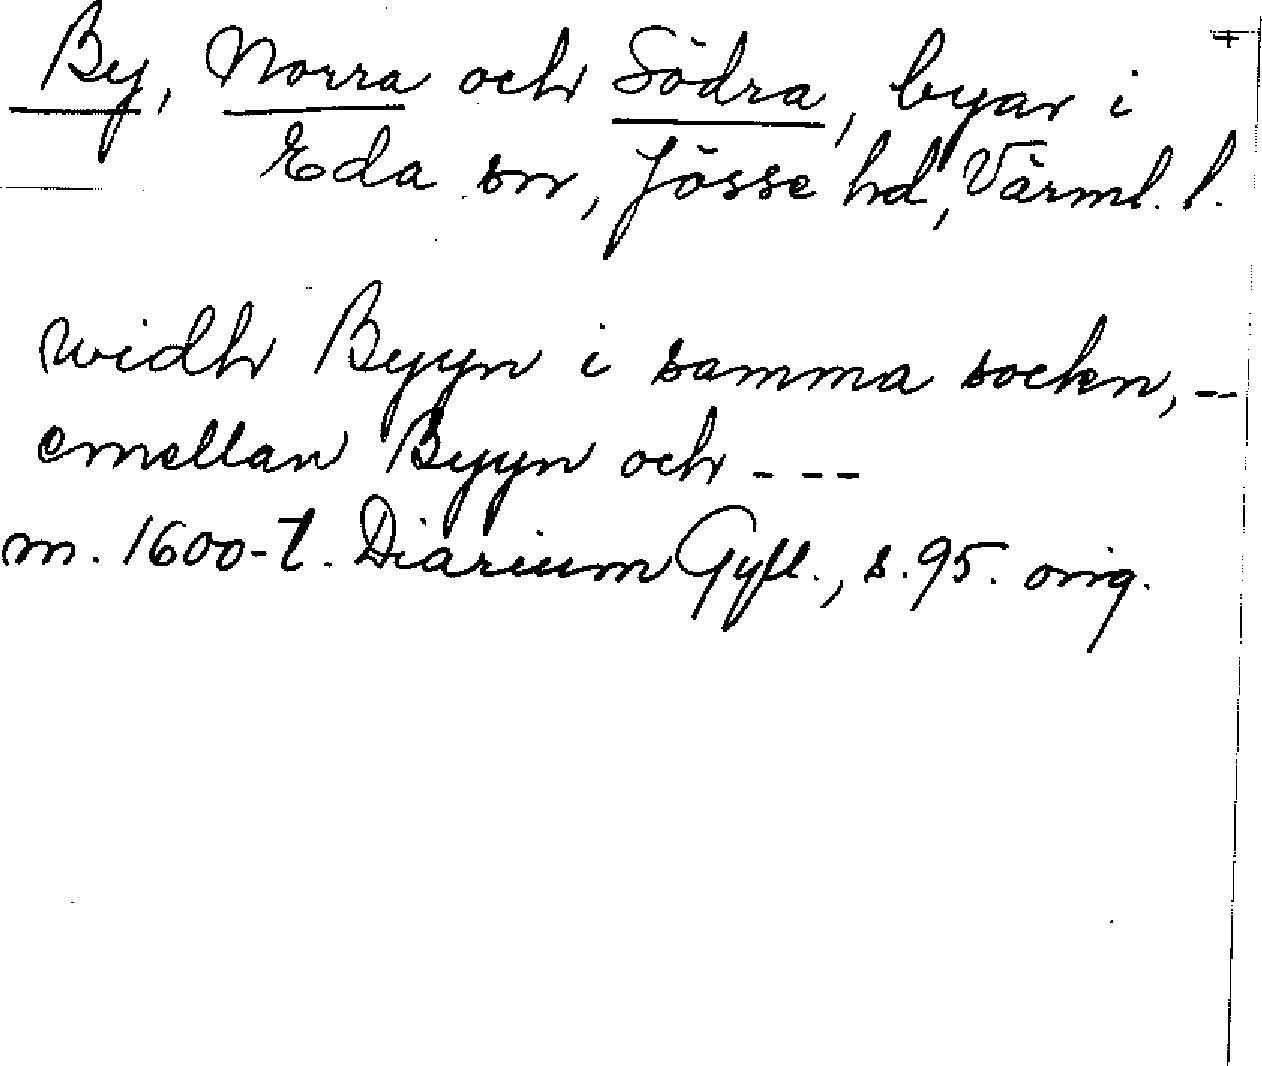 By, Norra och Södra, byar i
Eda sn, Jösse hd, Värml. l.
widh Byyn i samma sockn, --
emellan Byyn och ---
m. 1600-t. Diarium Gyll., s. 95. orig.